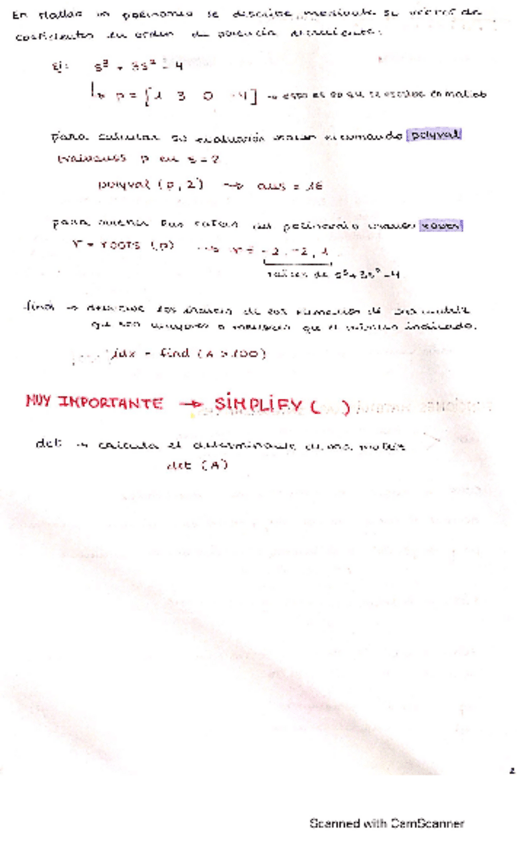 En Matlab un polinomio se describe mediante su vector de
coeficientes en orden de potencia decreciente:
Ej: s³ + 3s² - 4
p = [1 3 0 -4] → esto es lo que se escribe en matlab
para calcular su evaluación el comando polyval
evaluamos p en s = 2
polyval (p, 2) → ans = 16
para obtener las raíces del polinomio roots
r = roots (p) → r = -2, -2, 1
raíces de s³+3s²-4
find → los índices de los elementos de una matriz
que son mayores o menores que el indicado.
idx = find (A > 100)
MUY IMPORTANTE → SIMPLIFY ( )
det → calcula el determinante de una matriz
det (A)
2
Scanned with CamScanner